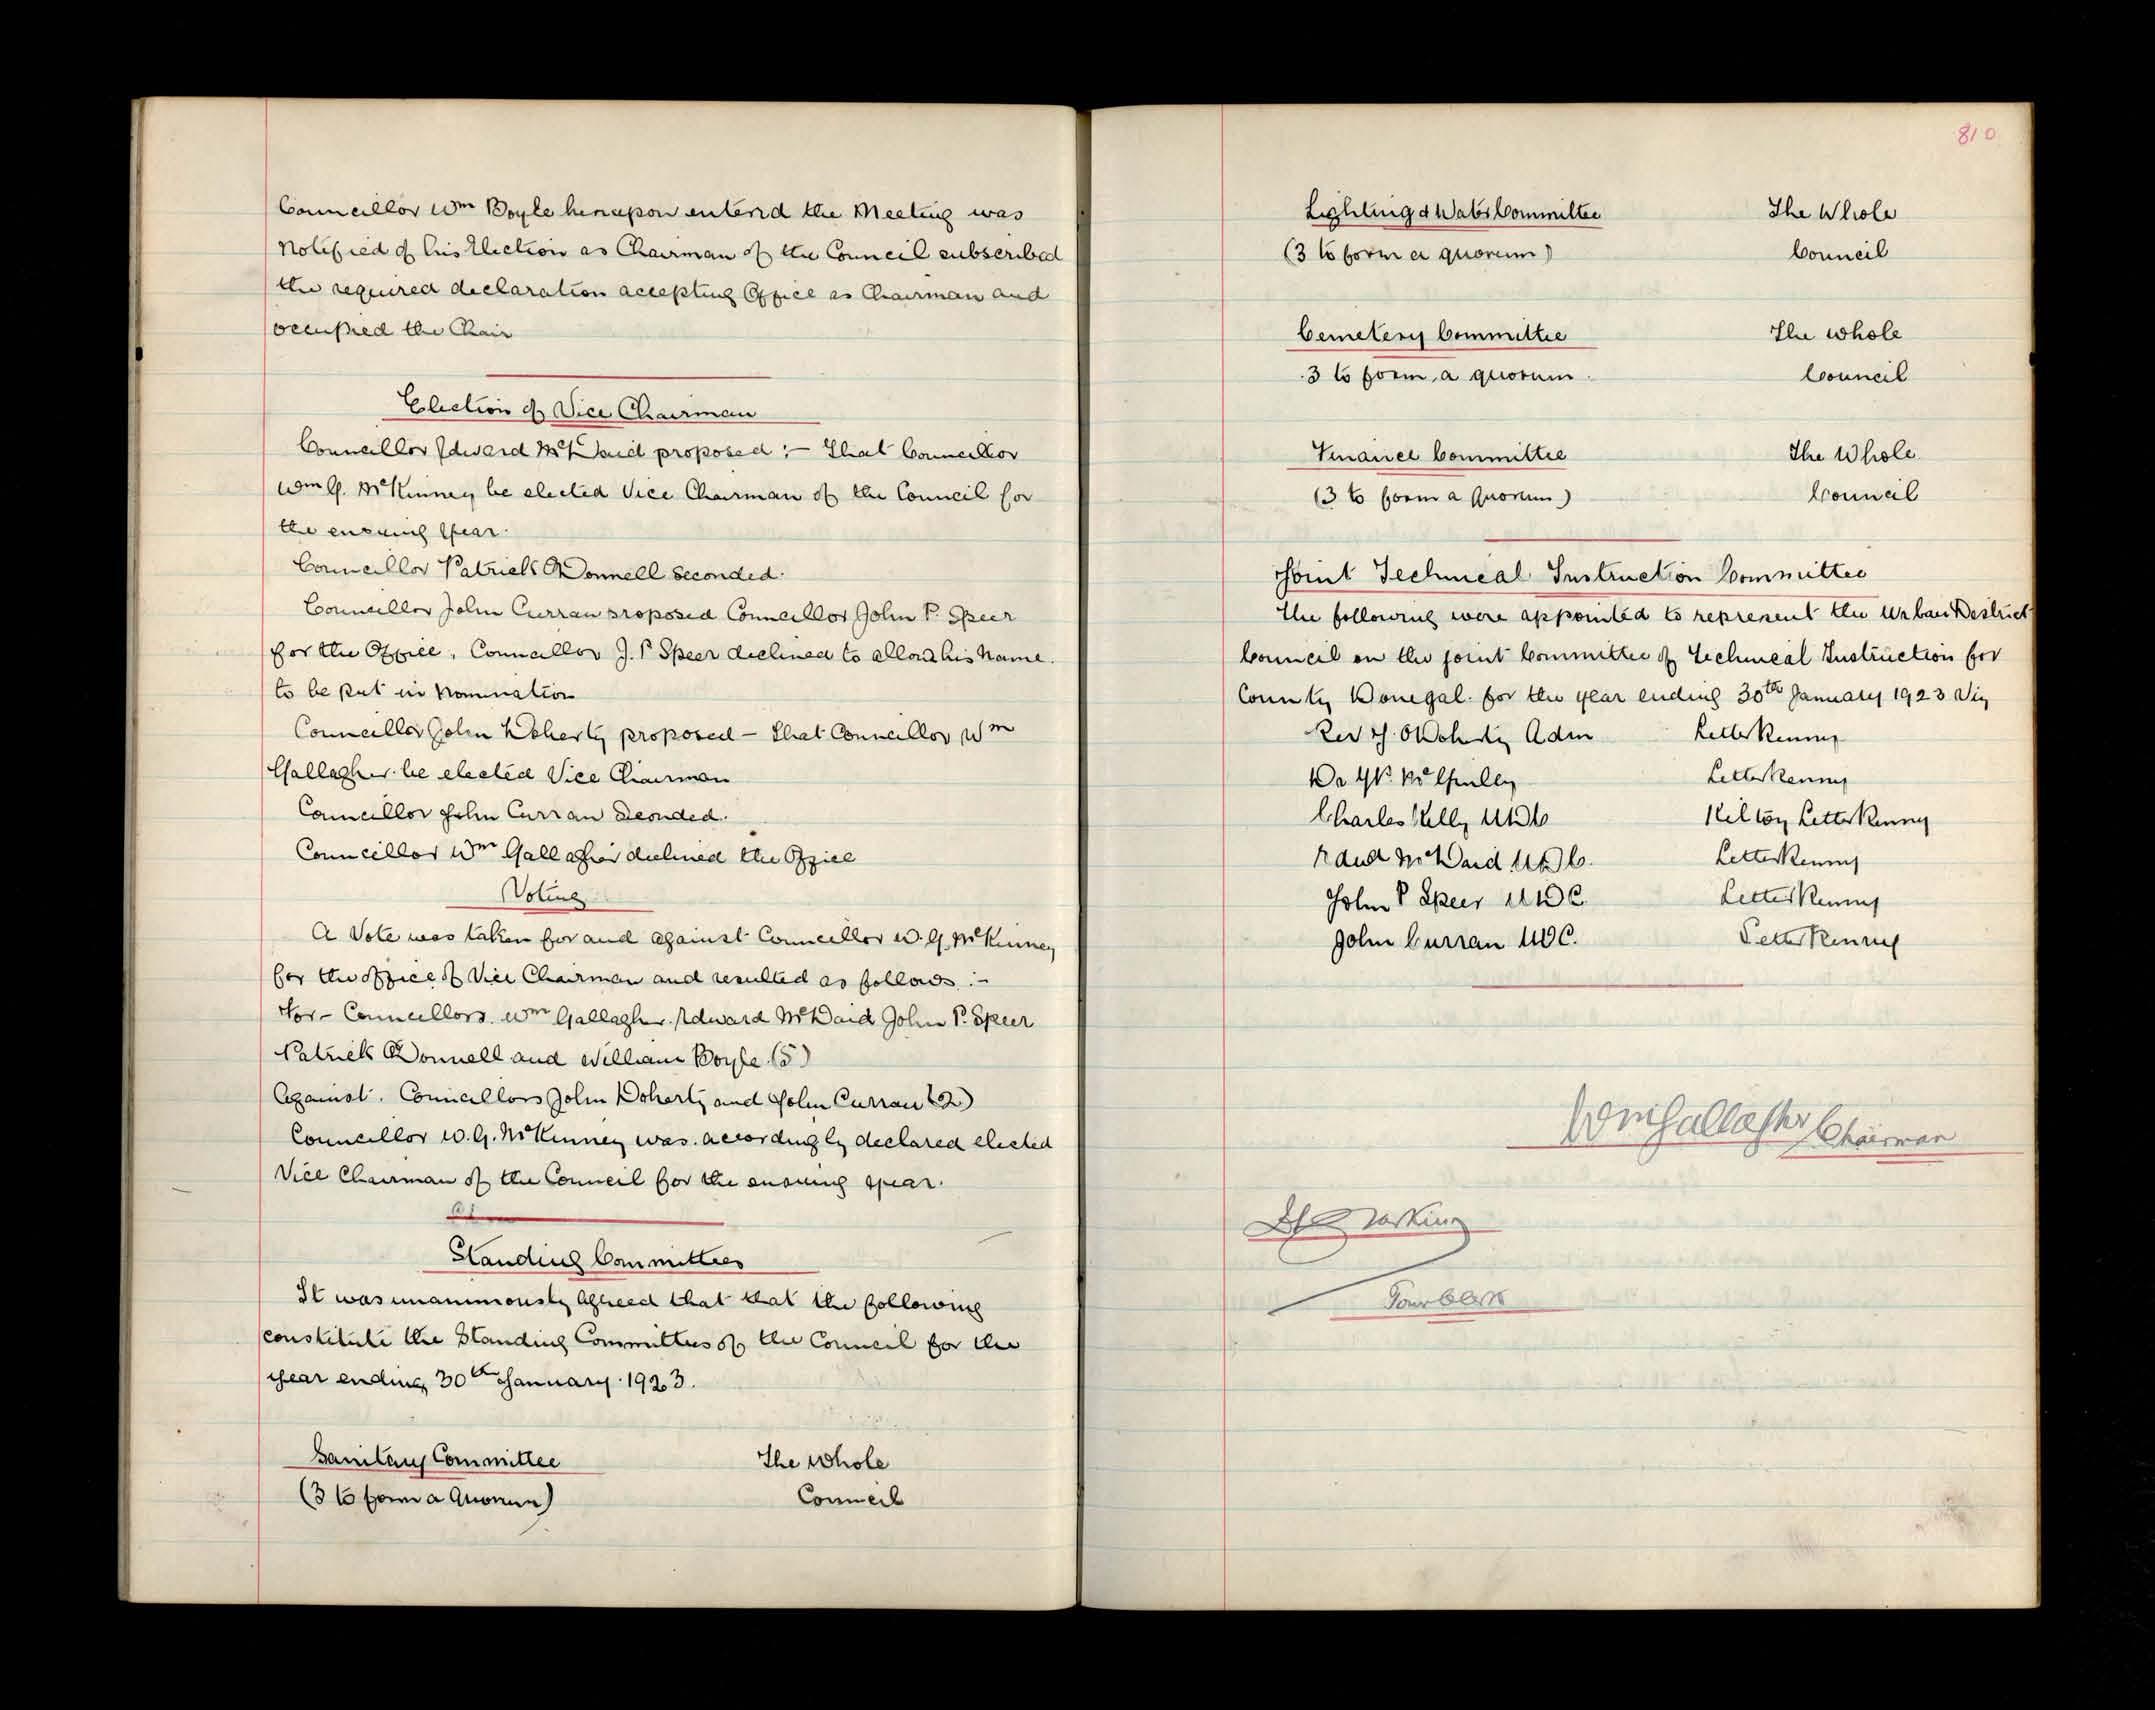 Councillor Wm Boyle hereupon entered the Meeting was
Notified of his Election as Chairman of the Council subscribed
the required declaration accepting Office as Chairman and
occupied the Chair
Election of Vice Chairman
Councillor Edward McDaid proposed :- That Councillor
Wm G. McKinney be elected Vice Chairman of the Council for
the ensuing year.
Councillor Patrick O'Donnell seconded.
Councillor John Curran proposed Councillor John P. Speer
for the Office, Councillor J. P Speer declined to allow his Name
to be put in Nomination
Councillor John Doherty proposed - That Councillor Wm
Gallagher be elected Vice Chairman
Councillor John Curran Seonded.
Councillor Wm Gallagher declined the Office
Voting
A Vote was taken for and against Councillor W. G. McKinney
for the office of Vice Chairman and resulted as follows :-
For - Councillors Wm Gallagher Edward McDaid John P. Speer
Patrick O'Donnell and William Boyle (5)
Against. Councillors John Doherty and John Curran (2)
Councillor W. G. McKinney was accordingly declared elected
Vice Chairman of the Council for the ensuing year.
Standing Committees
It was unanimously agreed that that the following
constitute the Standing Committees of the Council for the
year ending 30th January 1923.
Sanitary Committee The Whole
(3 to form a Quorum) Council
810
Lighting & Water Committee The Whole
(3 to form a quorum) Council
Cemetery Committee The whole
3 to form a quorum Council
Finance Committee The Whole
(3 to form a Quorum) Council
Joint Technical Instruction Committee
The following were appointed to represent the Urban District
Council on the joint Committee of Technical Instruction for
County Donegal for the year ending 30th January 1923 Viz
Rev J. O'Doherty Adm Letterkenny
Dr J.P. McGinley Letterkenny
Charles Kelly UDC Kiltoy Letterkenny
Edwd McDaid UDC. Letterkenny
John P Speer UDC Letterkenny
John Curran UDC. Letterkenny
Wm Gallagher Chairman
Town Clerk